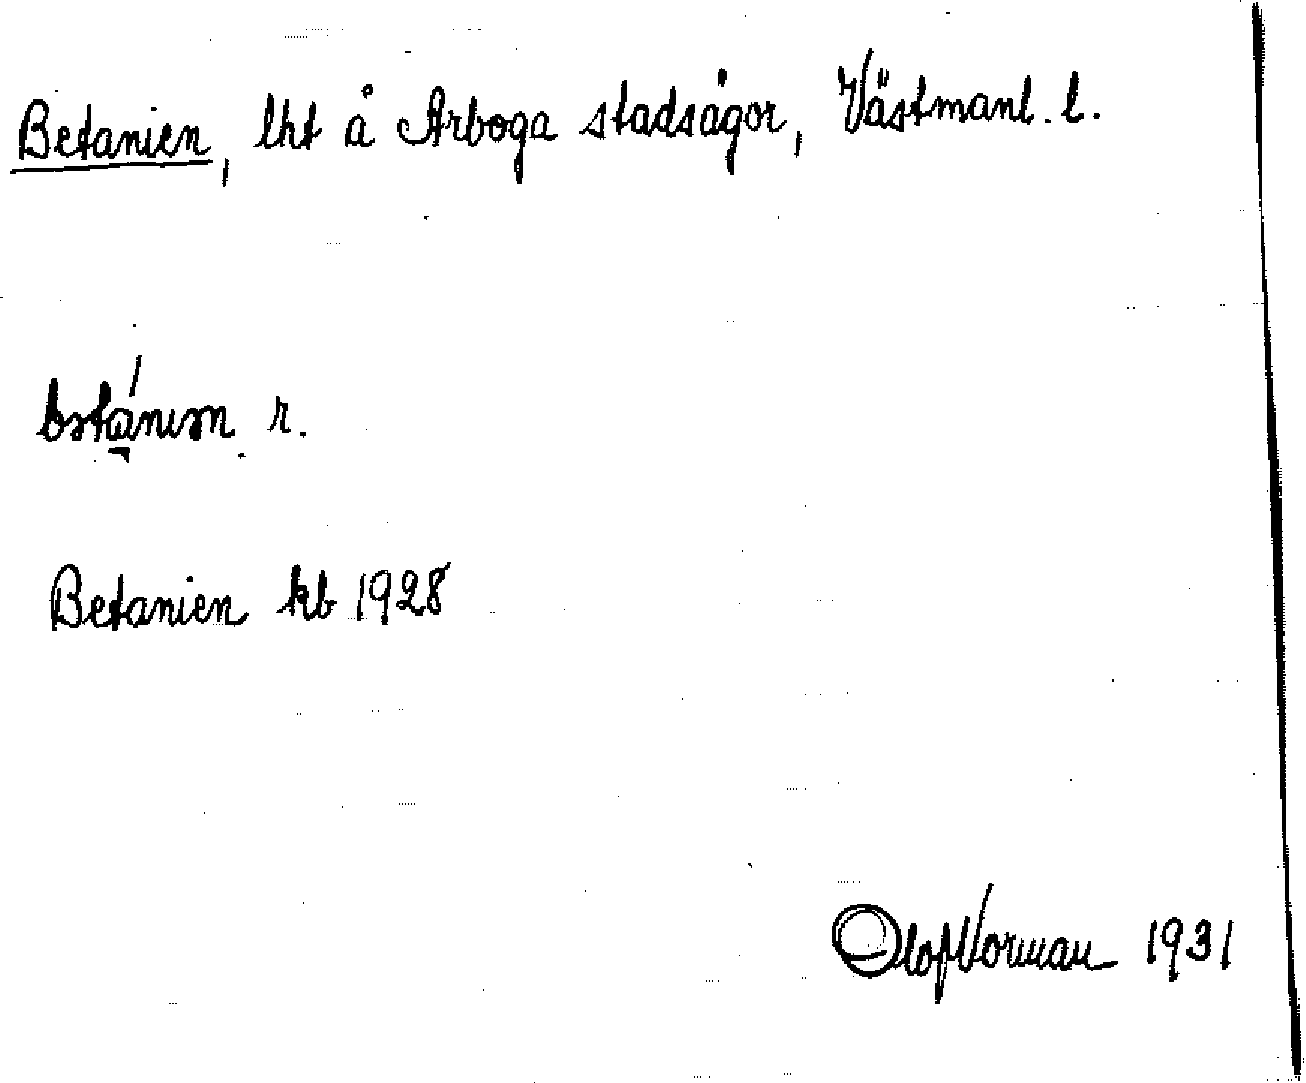 Betanien, lht å Arboga stadsägor, Västmanl. l.
r.
Betanien kb 1928
Olof Norman 1931